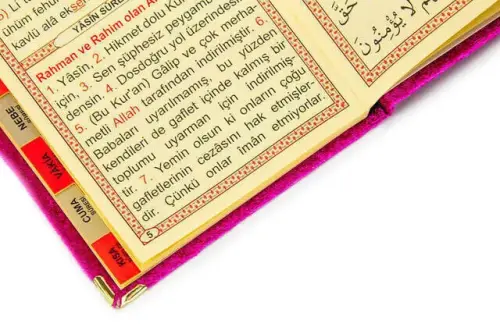 ühüm fehu
kavlü alâ ekse
YÂSÎN SÛRE
Rahman ve Rahim olan A
1. Yâsîn. 2. Hikmet dolu Ku
için. 3. Sen şüphesiz peygamb
densin. 4. Dosdoğru yol üzerindesi
5. (Bu Kur'an) Gâlip ve çok merha-
metli Allah tarafından indirilmiştir. 6.
Babaları uyarılmamış, bu yüzden
kendileri de gaflet içinde kalmış bir
toplumu uyarman için indirilmiş-
tir. 7. Yemin olsun ki onların çoğu
gafletlerinin cezâsını hak etmişler-
dir. Çünkü onlar îmân etmiyorlar.
5
NEBE
VAKIA
CUMA
SURESİ
KISA
لَا يُؤْمِنُونَ